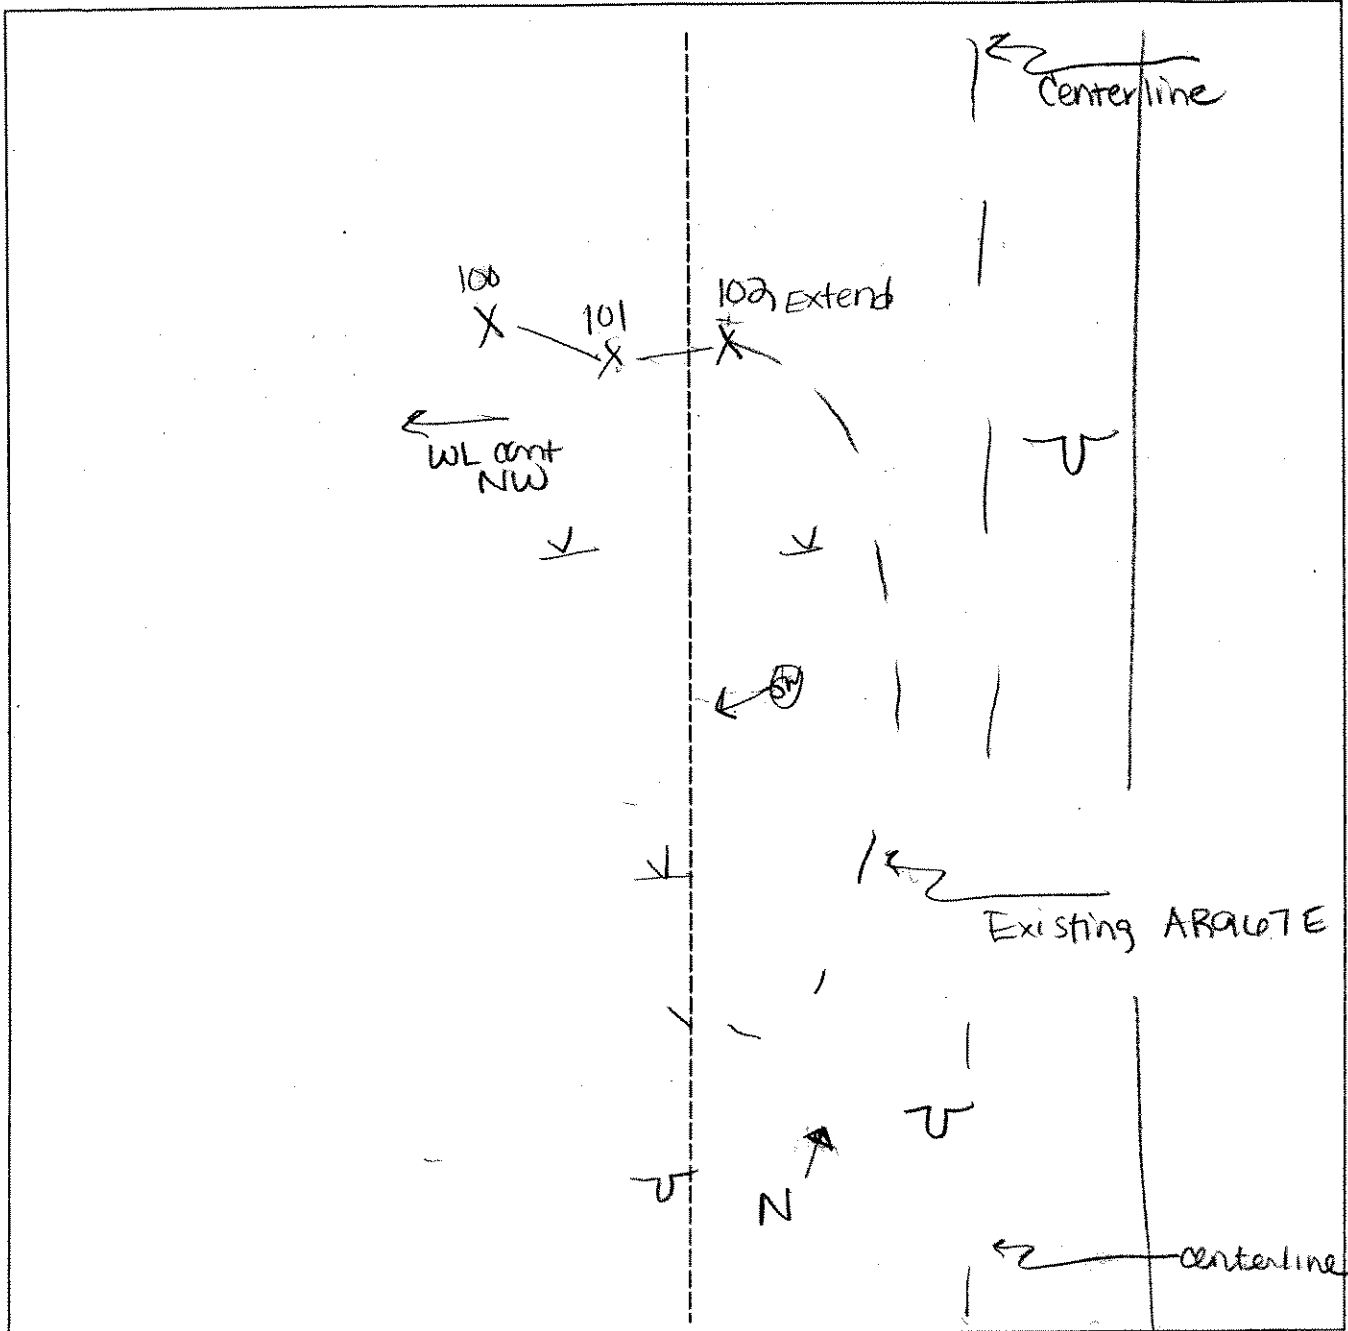 Centerline
100
101
102 Extend
WL cont
NW
Existing AR967E
N
centerline